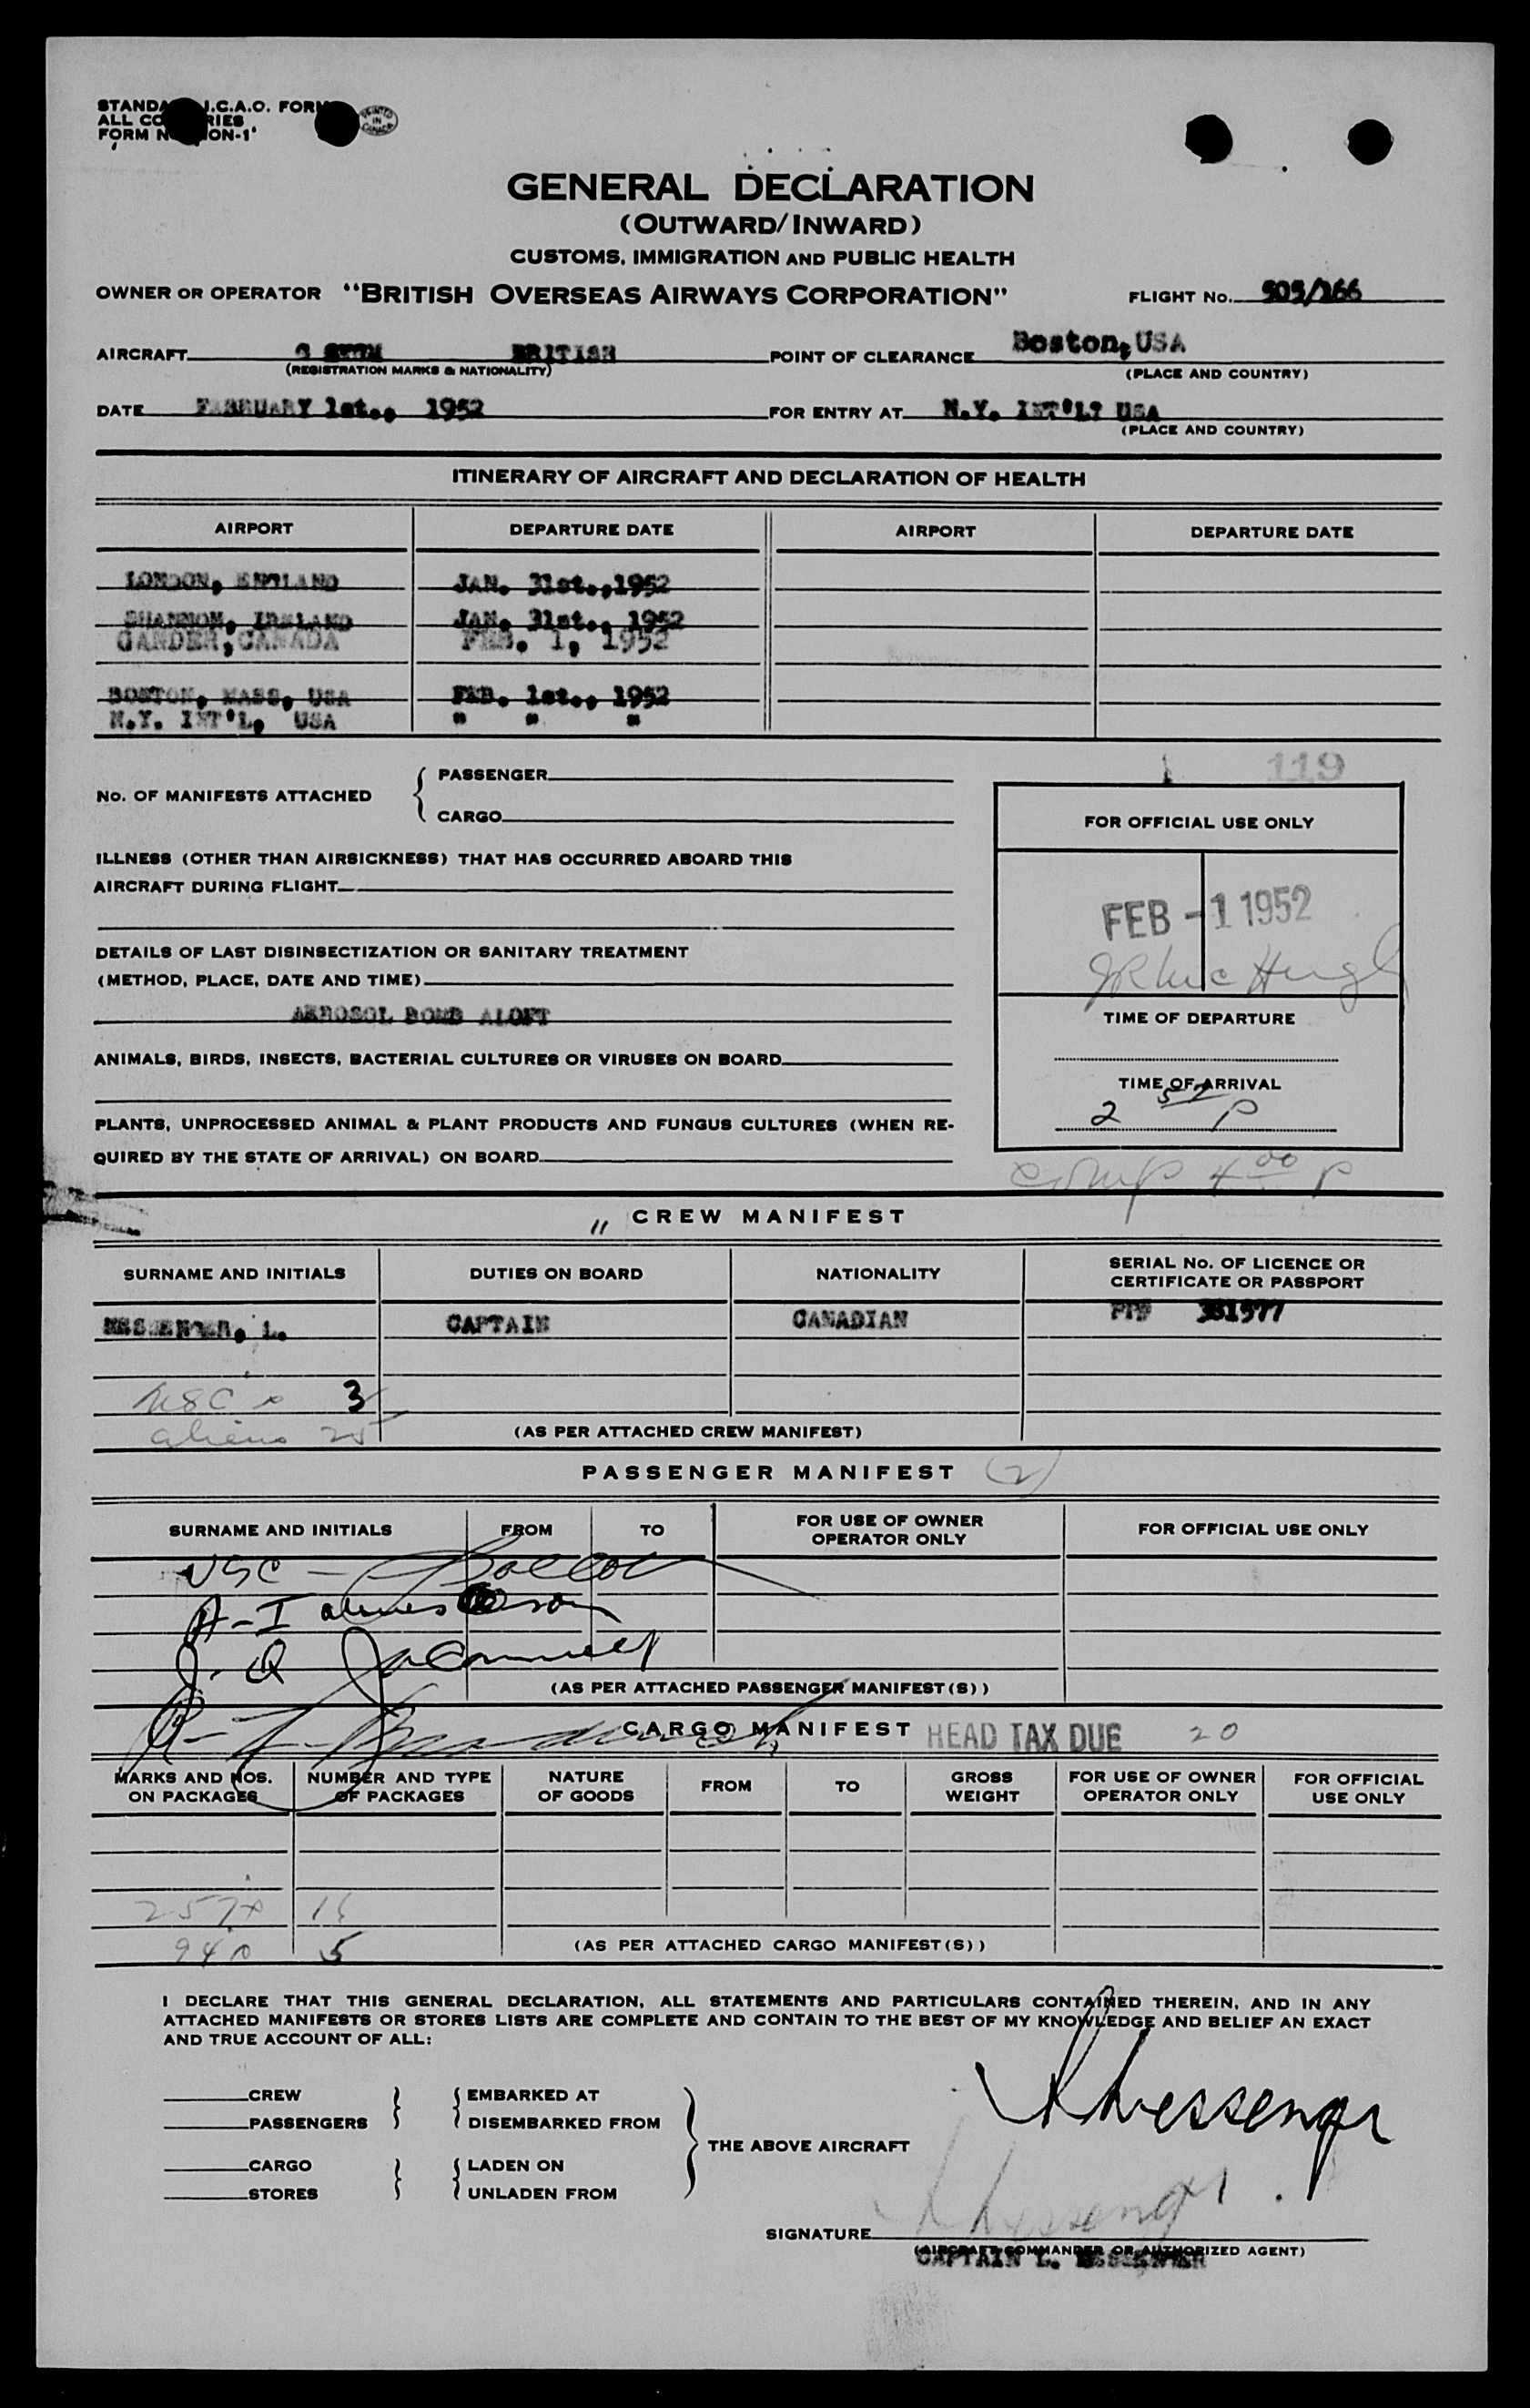 STANDARD I.C.A.O. FORM
ALL COUNTRIES
FORM No. ON-1
PRINTED IN CANADA
GENERAL DECLARATION
(OUTWARD/INWARD)
CUSTOMS, IMMIGRATION AND PUBLIC HEALTH
OWNER OR OPERATOR "BRITISH OVERSEAS AIRWAYS CORPORATION" FLIGHT No. 505/266
AIRCRAFT G BRITISH POINT OF CLEARANCE Boston, USA
(REGISTRATION MARKS & NATIONALITY) (PLACE AND COUNTRY)
DATE FABRUARY 1st., 1952 FOR ENTRY AT N.Y. INT'L? USA
(PLACE AND COUNTRY)
ITINERARY OF AIRCRAFT AND DECLARATION OF HEALTH
AIRPORT DEPARTURE DATE AIRPORT DEPARTURE DATE
LONDON, ENGLAND JAN. 31st.,1952
SHANNON, IRELAND JAN. 31st., 1952
GANDER, CANADA FEB. 1, 1952
BOSTON, MASS, USA FEB. 1st., 1952
N.Y. INT'L, USA " " "
119
No. OF MANIFESTS ATTACHED { PASSENGER
CARGO
FOR OFFICIAL USE ONLY
ILLNESS (OTHER THAN AIRSICKNESS) THAT HAS OCCURRED ABOARD THIS
AIRCRAFT DURING FLIGHT
FEB -1 1952
DETAILS OF LAST DISINSECTIZATION OR SANITARY TREATMENT
(METHOD, PLACE, DATE AND TIME)
AEROSOL BOMB ALOFT
TIME OF DEPARTURE
ANIMALS, BIRDS, INSECTS, BACTERIAL CULTURES OR VIRUSES ON BOARD
TIME OF ARRIVAL
2 52 P
PLANTS, UNPROCESSED ANIMAL & PLANT PRODUCTS AND FUNGUS CULTURES (WHEN RE-
QUIRED BY THE STATE OF ARRIVAL) ON BOARD
comp 4 00 P
11 CREW MANIFEST
SURNAME AND INITIALS DUTIES ON BOARD NATIONALITY SERIAL No. OF LICENCE OR
CERTIFICATE OR PASSPORT
MESSENGER, L. CAPTAIN CANADIAN PPN 381577
USC 3
aliens 25 (AS PER ATTACHED CREW MANIFEST)
PASSENGER MANIFEST (2)
SURNAME AND INITIALS FROM TO FOR USE OF OWNER
OPERATOR ONLY FOR OFFICIAL USE ONLY
USC -
A-I
J. Q
(AS PER ATTACHED PASSENGER MANIFEST(S))
CARGO MANIFEST HEAD TAX DUE 20
MARKS AND NOS.
ON PACKAGES NUMBER AND TYPE
OF PACKAGES NATURE
OF GOODS FROM TO GROSS
WEIGHT FOR USE OF OWNER
OPERATOR ONLY FOR OFFICIAL
USE ONLY
257 16
94 5 (AS PER ATTACHED CARGO MANIFEST(S))
I DECLARE THAT THIS GENERAL DECLARATION, ALL STATEMENTS AND PARTICULARS CONTAINED THEREIN, AND IN ANY
ATTACHED MANIFESTS OR STORES LISTS ARE COMPLETE AND CONTAIN TO THE BEST OF MY KNOWLEDGE AND BELIEF AN EXACT
AND TRUE ACCOUNT OF ALL:
CREW EMBARKED AT
PASSENGERS DISEMBARKED FROM
THE ABOVE AIRCRAFT
CARGO LADEN ON
STORES UNLADEN FROM
LMessenger
LMessenger
SIGNATURE
(AIRCRAFT COMMANDER OR AUTHORIZED AGENT)
CAPTAIN L. MESSENGER